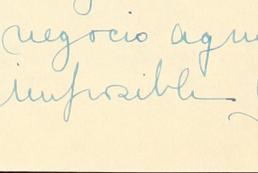 negocio
imposible